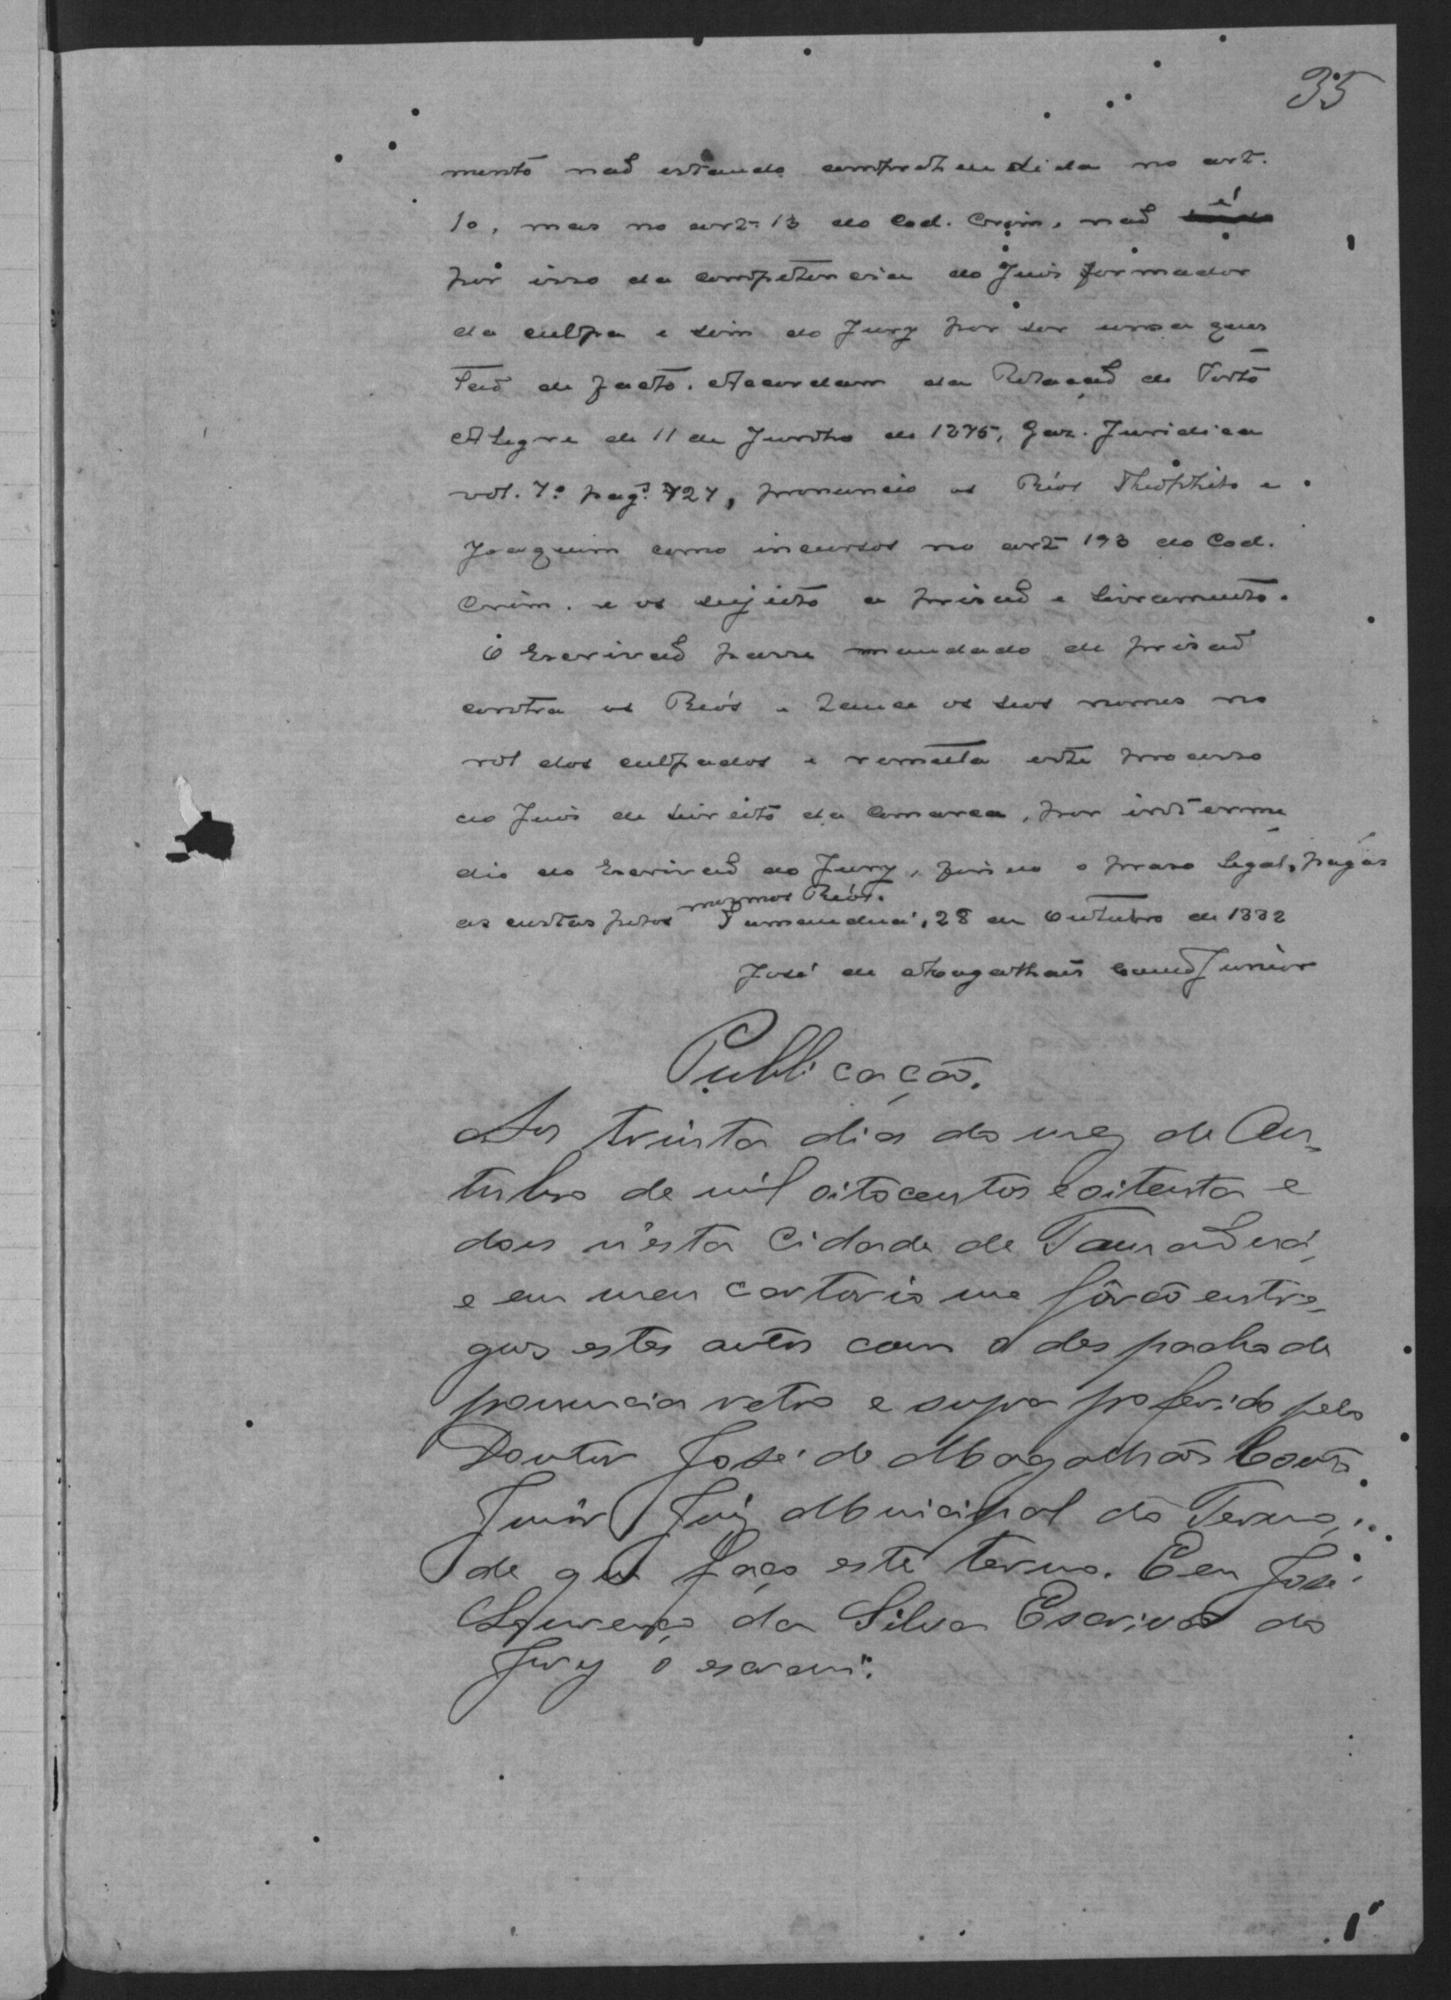 35
mento não estando comprehendida no art.
10, mas no art. 13 do Cod. Crim., não é
por isso da competencia do Juis formador
da culpa e sim do Jury por ser uma ques
tão de facto. Accordam da Relação de Porto
Alegre de 11 de Junho de 1875, Gaz. Juridica
vol. 7º pag. 427, pronuncio os Réos Theophilo e
Joaquim como incursos no art 193 do Cod.
Crim. e os sujeito a prisão e livramento.
O Escrivão passe mandado de prisão
contra os Réos e lance os seos nomes no
rol dos culpados e remetta este processo
ao Juis de Direito da Comarca, por interme
dio do Escrivão do Jury, findo o praso legal, pagas
as custas pelos mesmos Réos. Tamanduá, 28 de Outubro de 1882
José de Magalhães Couto Junior
Publicação.
Aos trinta dias do mez de Ou-
tubro de mil oitocentos e oitenta e
dois n'esta Cidade de Tamanduá,
e em meu cartorio me fôrão entre-
gues estes autos com o despacho de
pronuncia retro e supra proferido pelo
Doutor José de Magalhães Couto
Junior Juiz Municipal do Termo,
de que faço este termo. Eu José
Lourenço da Silva Escrivão do
Jury o escrevi.